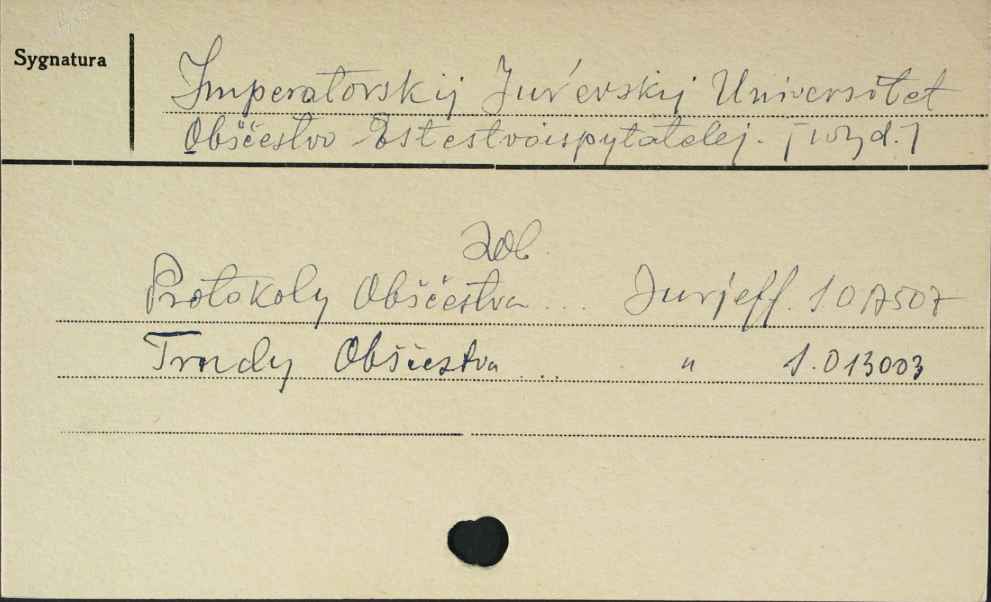 Sygnatura
Imperatorskij Jur'evskij Universitet
Obščestvo Estestvoispytatelej. [wyd.]
Zob.
Protokoly Obščestva ... Jurjeff. 1017507
Trudy Obščestva ... " 1.013003